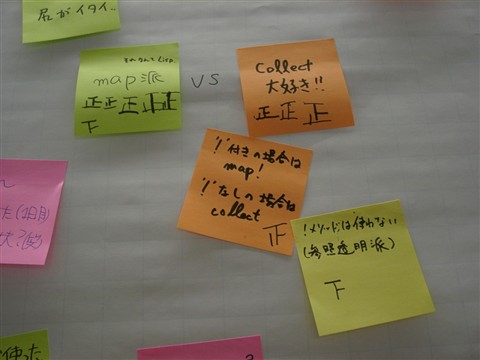 尻がイタイ..
map派
正正正正正
下
VS
Collect
大好き!!
正正正
'!'付きの場合は
map!
'!'なしの場合は
collect
正
!メソッドは使わない
(参照透明派)
下
た(1日目)
使った